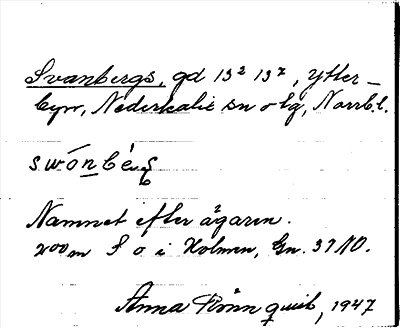 Svanbergs, gd 13² 13⁷, Ytter-
byn, Nederkalix sn o lg, Norrb.l.
swónbérg
Namnet efter ägaren.
200 m S o i Holmen, Gn. 37 NO.
Anna Rönnquist, 1947